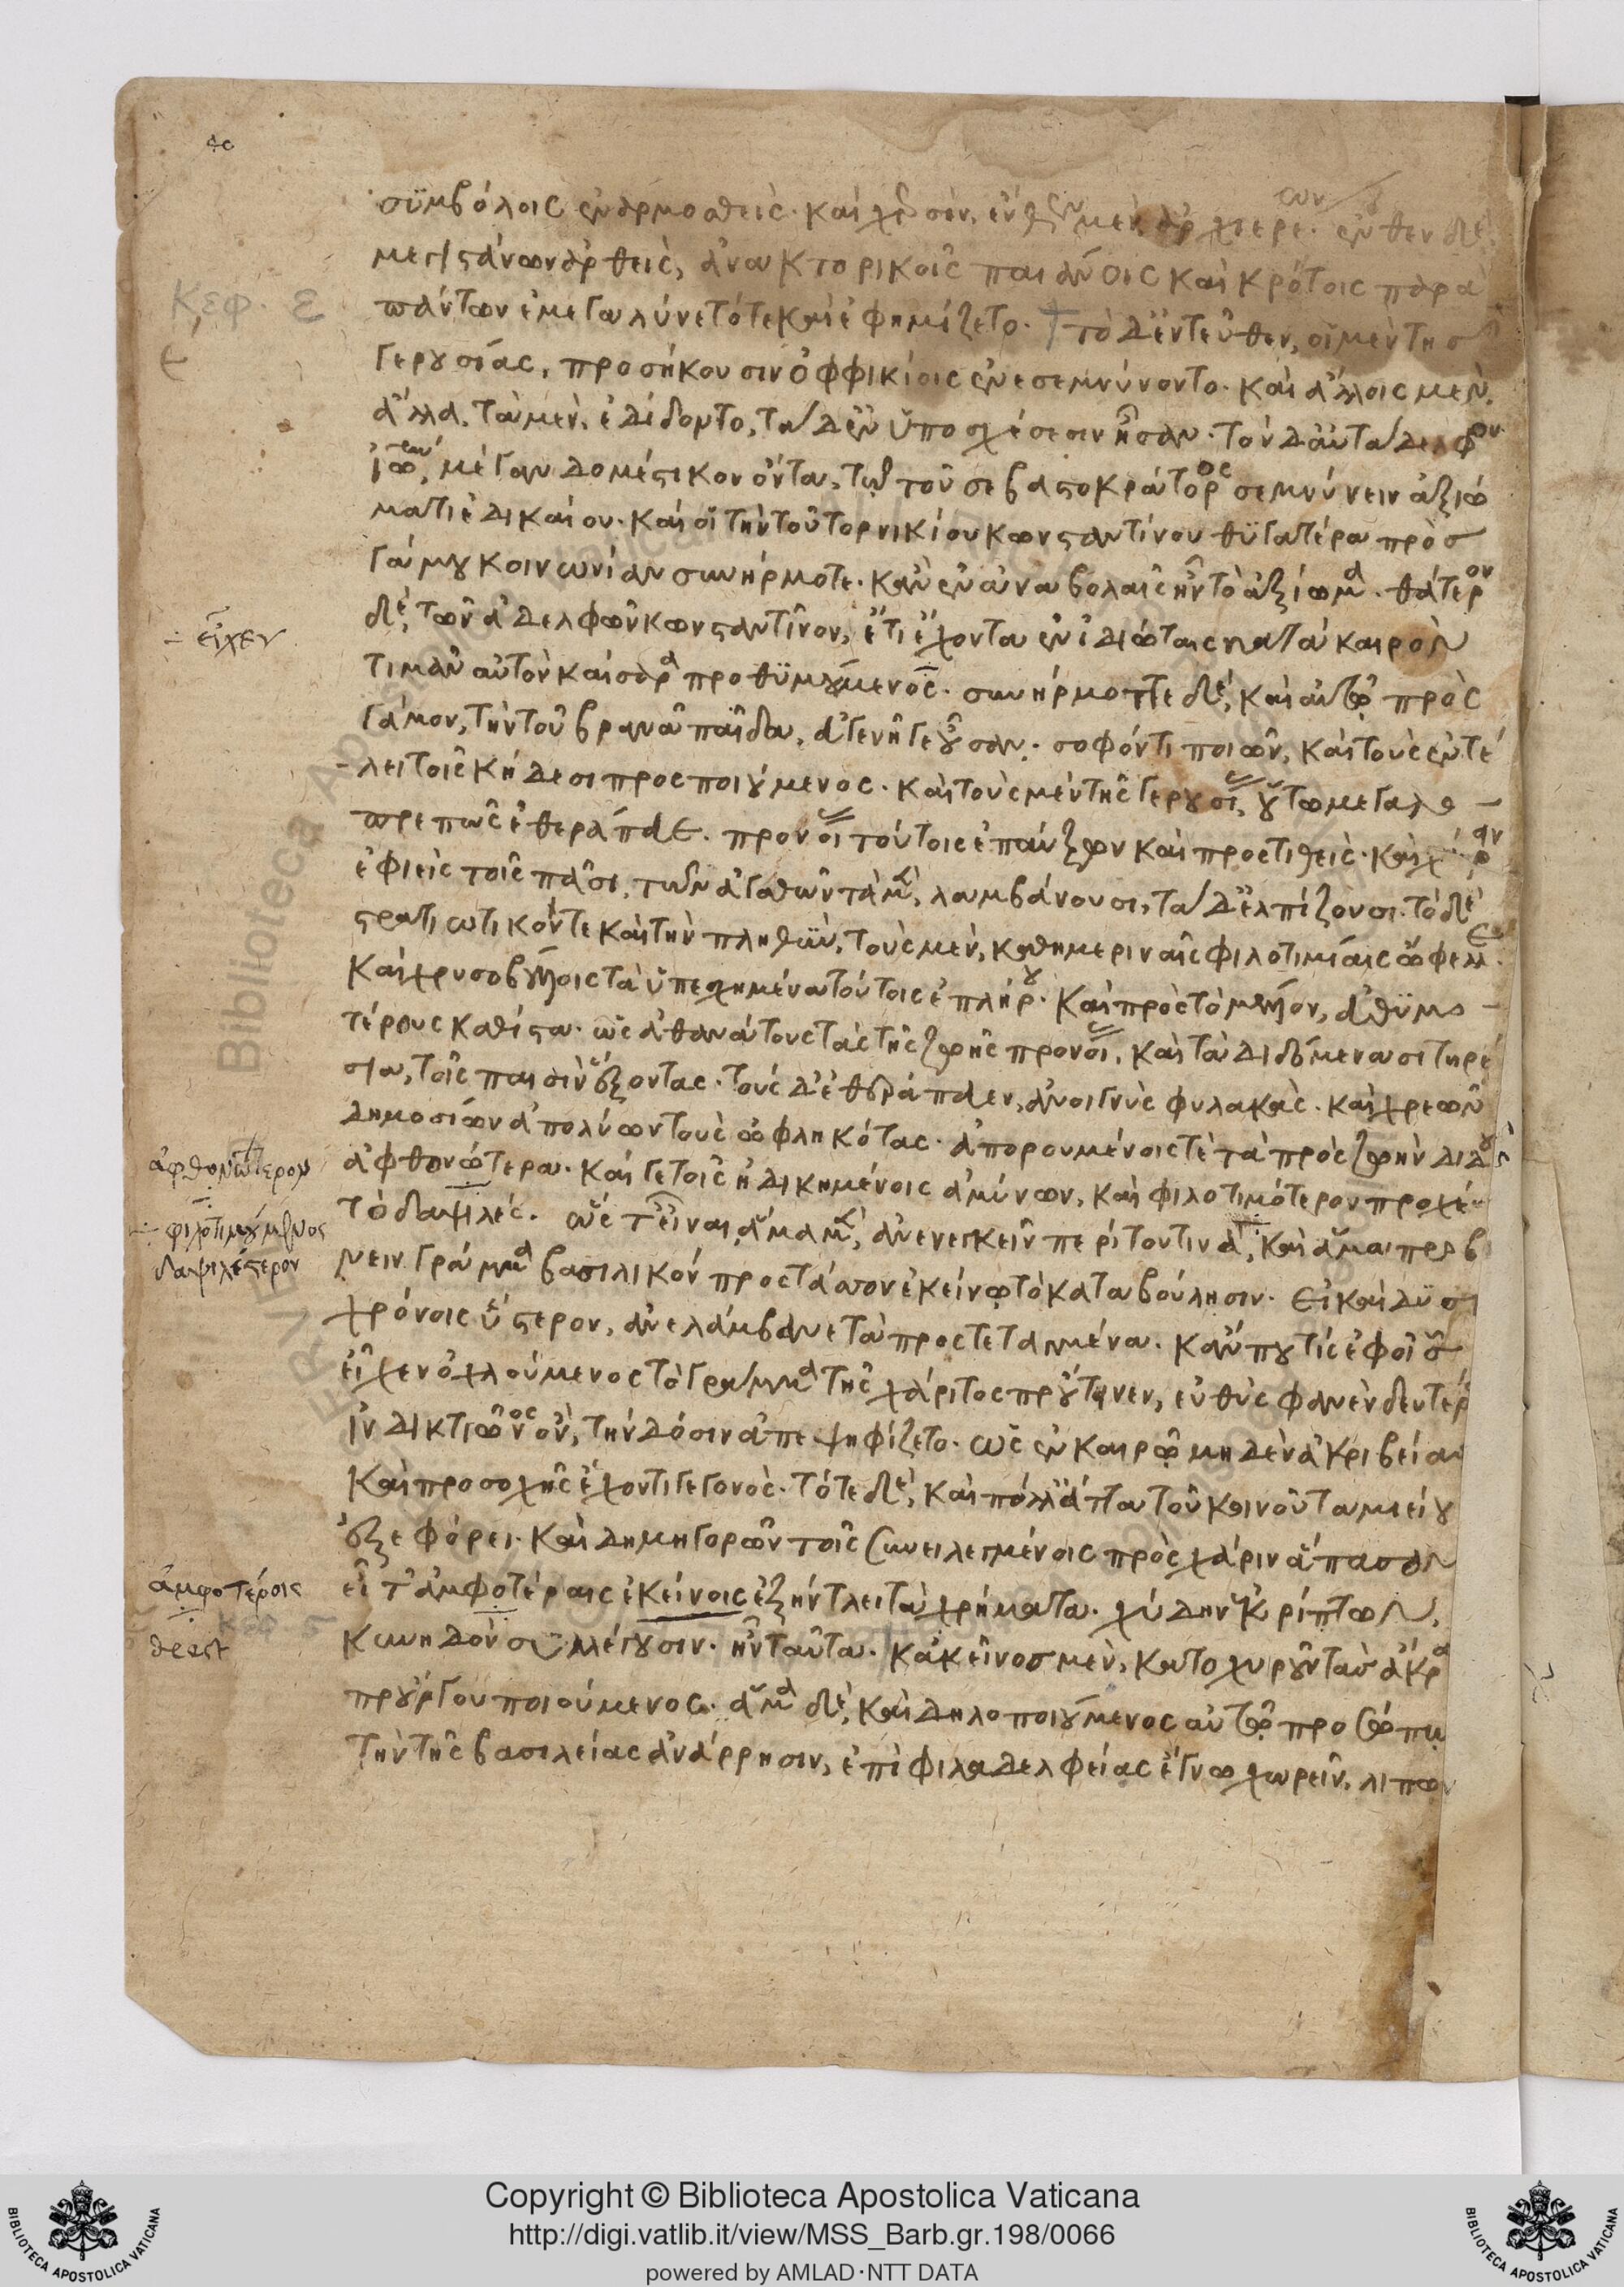 συμβόλοις ἐναρμοσθεὶς. καὶ
μεγιστάνων ἀρθεὶς, ἀνακτορικοῖς παιᾶσις καὶ κρότοις παρὰ
Κεφ. ε
πάντων ἐμεγαλύνετό τε καὶ ἐφημίζετο. τὸ δ' ἐντεῦθεν, οἱ μὲν τῆς
γερουσίας, προσήκουσιν ὀφφικίοις ἐνεσεμνύνοντο. καὶ ἄλλοις μὲν,
ἄλλα. τὰ μὲν, ἐδίδοντο, τὰ δ' ἐν ὑποσχέσεσιν ἦσαν. τὸν δ' αὐτάδελφον
Ἰωάννην, μέγαν δομέστικον ὄντα, τῷ τοῦ σεβαστοκράτορος σεμνύνειν ἀξιώ
ματι ἐδικαίου. καὶ οἱ τὴν τοῦ τορνικίου κωνσταντίνου θυγατέρα πρὸς
γάμου κοινωνίαν συνήρμοττε. κἂν ἐν ἀναβολαῖς ἦν τὸ ἀξίωμα. θάτερον
∻ εἶχεν
δὲ, τῶν ἀδελφῶν κωνσταντῖνον, ἔτι ἔχοντα ἐν ἰδιώταις κατὰ καιρὸν
τιμᾶν αὐτὸν καίσαρα προθυμούμενος. συνήρμοττε δὲ, καὶ αὐτῷ πρὸς
γάμον, τὴν τοῦ βρανᾶ παῖδα, ἀγενῆ γε οὖσαν. σοφόν τι ποιῶν, καὶ τοὺς ἐν τέ
λει τοῖς κήδεσι προσποιούμενος. καὶ τοὺς μὲν τῆς γερουσίας, οὕτω μεγαλο
πρεπῶς ἐθεράπευε. προνοίας τούτοις ἐπαύξων καὶ προστιθεὶς. καὶ χάριν
ἐφιεὶς τοῖς πᾶσι. τῶν ἀγαθῶν τὰ μὲν, λαμβάνουσι, τὰ δ' ἐλπίζουσι. τὸ δὲ
στρατιωτικόν τε καὶ τὴν πληθὺν, τοὺς μὲν, καθημεριναῖς φιλοτιμίαις ὤφελλε.
καὶ χρυσοβούλλοις τὰ ὑπεσχημένα τούτοις ἐπλήρου. καὶ πρὸς τὸ μέλλον, εὐθυμο
τέρους καθίστα. ὡς ἀθανάτους τὰς τῆς ζωῆς προνοίας, καὶ τὰ διδόμενα σιτηρέ
σια, τοῖς παισὶν ἕξοντας. τοὺς δ' ἐθεράπευεν, ἀνοιγνὺς φυλακὰς. καὶ χρεῶν
δημοσίων ἀπολύων τοὺς ὠφληκότας. ἀπορουμένοις τὲ τὰ πρὸς ζωὴν διδοὺς
ἀφθονώτερον
ἀφθονώτερα. καί γε τοῖς ἠδικημένοις ἀμύνων, καὶ φιλοτιμότερον προχέ
∻ φιλοτιμούμενος
δαψιλέστερον
τὸ δαψιλές. ὡς τ' εἶναι, ἅμα μὲν, ἀνενεγκεῖν περί του τινὰ, καὶ ἅμα προβ
νειν γράμμα βασιλικόν προστάσσον ἐκείνῳ τὸ κατὰ βούλησιν. εἰ καὶ δυσὶ
χρόνοις ὕστερον, ἀνελάμβανε τὰ προστεταγμένα. κἂν πού τις ἐφ' οἷς
εἶχεν ὀχλούμενος τὸ γράμμα τῆς χάριτος προύτεινεν, εὐθὺς φανὲν δευτέρ
ἰνδικτιῶνος ὂν, τὴν δόσιν ἀπεψηφίζετο. ὡς ἐν καιρῷ μηδὲν ἀκριβείας
καὶ προσοχῆς ἔχοντι γεγονὸς. τότε δὲ, καὶ πόλλ' ἄττα τοῦ κοινοῦ ταμιείου
ἐξεφόρει. καὶ δημηγορῶν τοῖς συνειλεγμένοις πρὸς χάριν ἅπασαν
ἀμφοτέροις
deest
εἶτ' ἀμφοτέραις ἐκείνοις ἐξήντλει τὰ χρήματα. χύδην ἐκρίπτων,
κυνηδὸν συλλέγουσιν. ἦν ταῦτα. κἀκεῖνος μὲν, κατοχυροῦν τὰς ἄκρα
προύργου ποιούμενος. ἅμα δὲ, καὶ δηλοποιούμενος αὐτῷ προσώπῳ
τὴν τῆς βασιλείας ἀνάρρησιν, ἐπὶ φιλαδελφείας ἔγνω χωρεῖν. λιπὼν
Copyright © Biblioteca Apostolica Vaticana
http://digi.vatlib.it/view/MSS_Barb.gr.198/0066
powered by AMLAD·NTT DATA
BIBLIOTECA APOSTOLICA VATICANA
BIBLIOTECA APOSTOLICA VATICANA